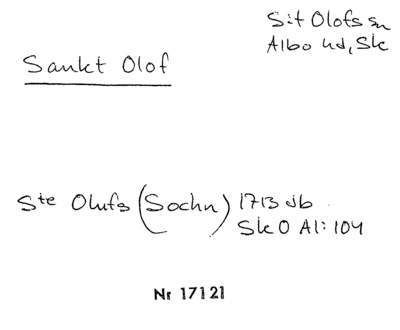 S:t Olofs sn
Albo hd, Sk
Sankt Olof
Ste Olufs (Sochn) 1713 Jb
Sk O Al: 104
Nr 17121